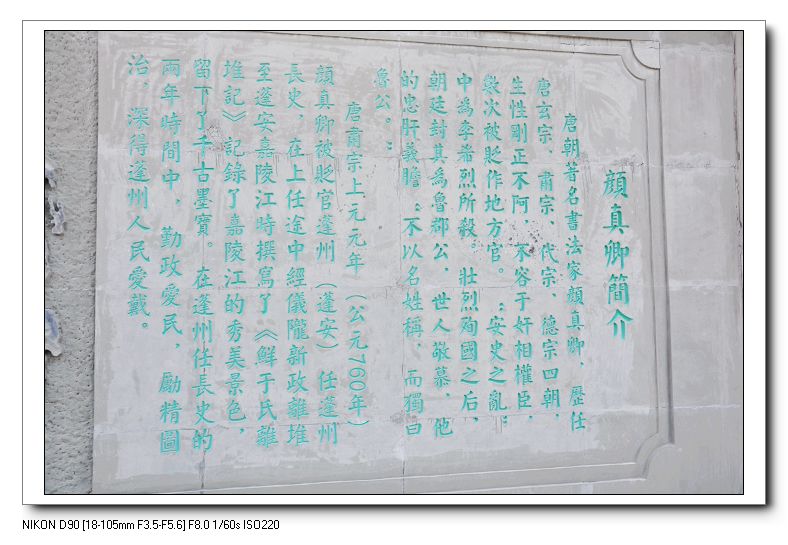 顔真卿簡介
唐朝著名書法家顔真卿、歷任
唐玄宗、肅宗、代宗、德宗四朝，
生性剛正不阿，不容于奸相權臣，
數次被貶作地方官。：安史之亂：
中為李希烈所殺。壯烈殉國之后，
朝廷封其為魯郡公，世人敬慕，他
的忠肝義膽：不以名姓稱，而獨曰
魯公。：
唐肅宗上元元年（公元760年）
顔真卿被貶官蓬州（蓬安）任蓬州
長史，在上任途中經儀隴新政離堆
至蓬安嘉陵江時撰寫了《鮮于氏離
堆記》記錄了嘉陵江的秀美景色，
留下了千古墨寶。在蓬州任長史的
兩年時間中，勤政愛民，勵精圖
治，深得蓬州人民愛戴。
NIKON D90 [18-105mm F3.5-F5.6] F8.0 1/60s ISO220